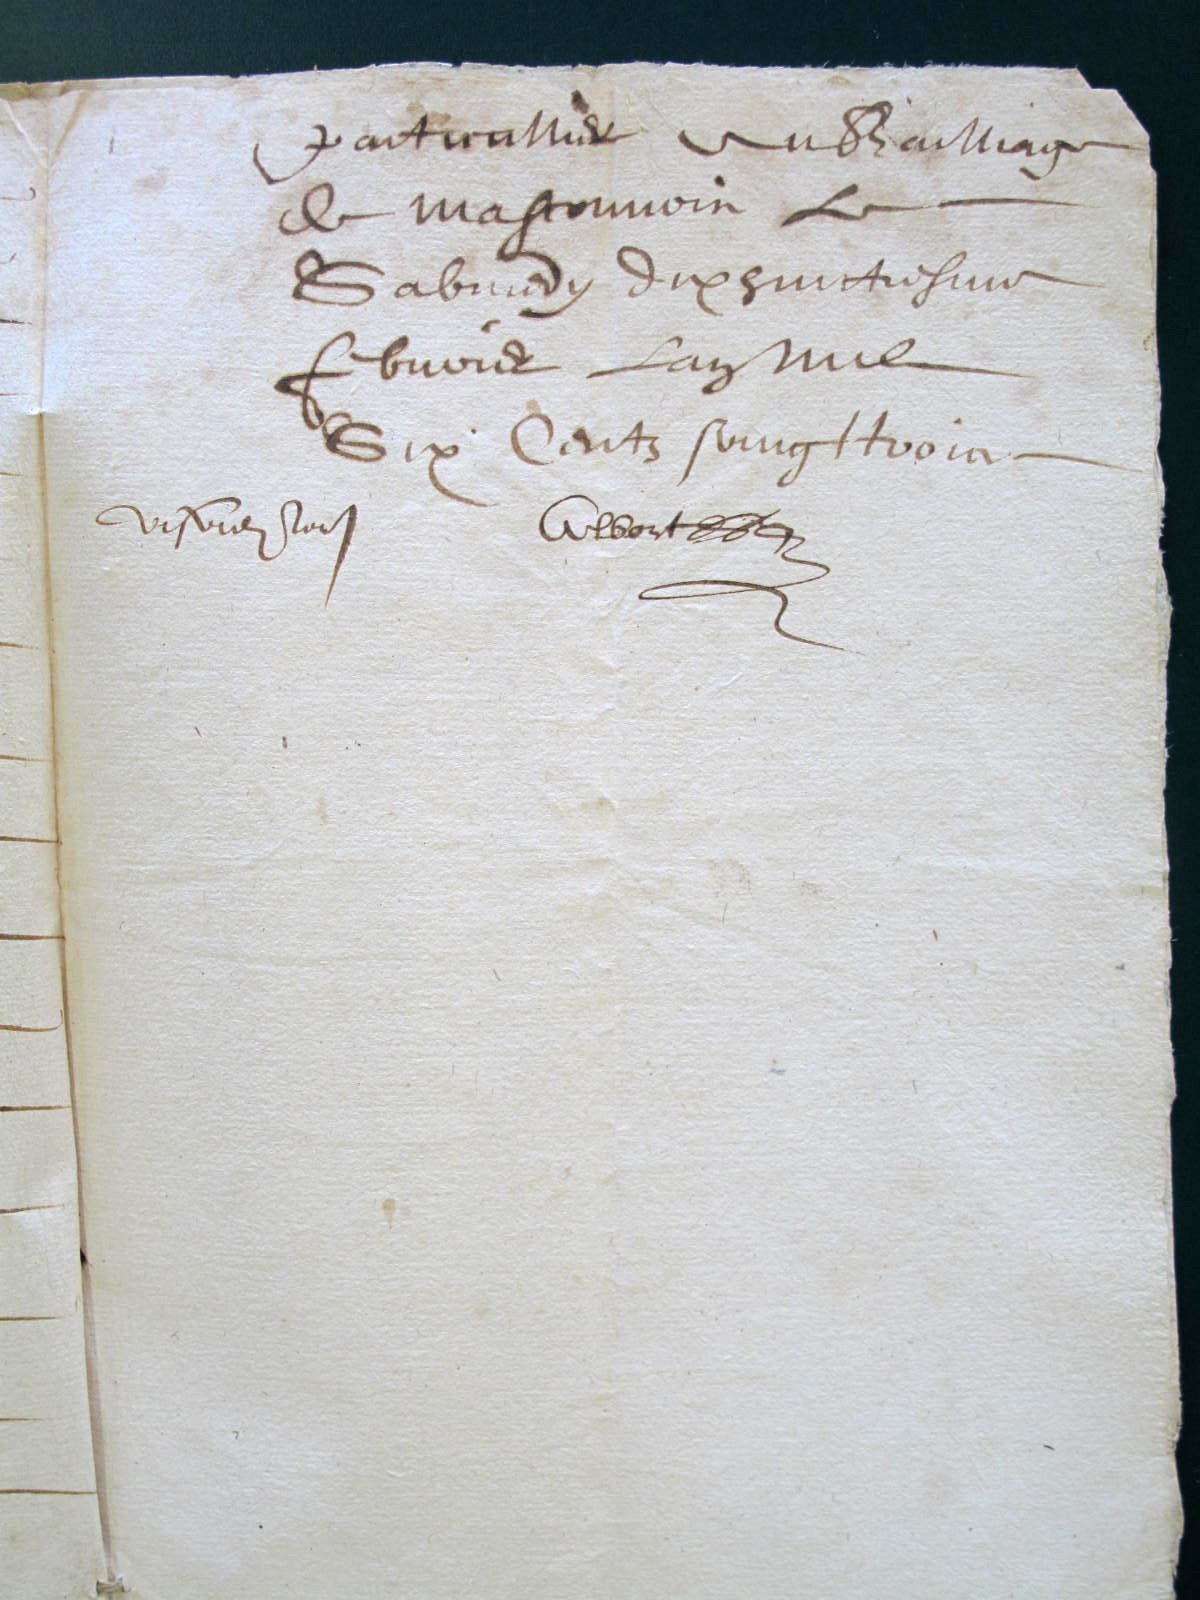 particullier au Bailliage
de masconnois Le
Sabmedy dixhuictiesme
febvrier Lan mil
Six Centz soingttrois
Albert